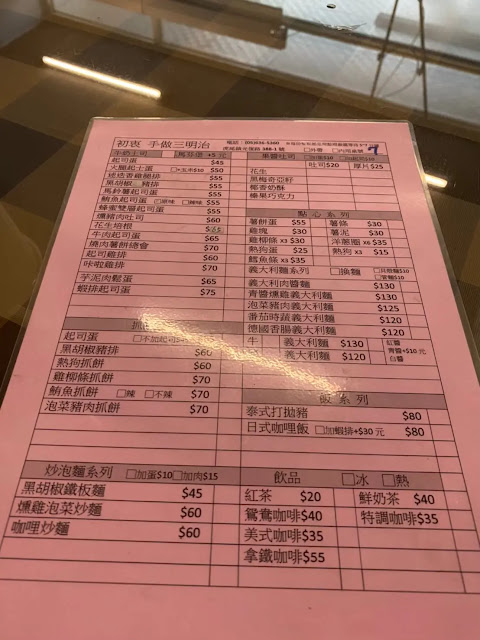 初衷 手做三明治
電話：(05)636-5360
虎尾鎮光復路 388-1 號
□外帶 □內用桌號 7
牛奶土司 □馬芬堡 +5 元
起司蛋 $45
火腿起士蛋 □+玉米$10 $50
迷迭香雞腿排 $55
黑胡椒 豬排 $55
馬鈴薯起司蛋 $55
鮪魚起司蛋 □原味 □辣味 $55
蜂蜜雙層起司蛋 $55
燻豬肉吐司 $60
花生培根
牛肉起司蛋 $65
燒肉薯餅總會 $70
起司雞排 $60
咔啦雞排 $70
芋泥肉鬆蛋 $65
蝦排起司蛋 $75
抓餅
起司蛋
黑胡椒豬排 $60
熱狗抓餅 $60
雞柳條抓餅 $70
鮪魚抓餅 □辣 □不辣 $70
泡菜豬肉抓餅 $70
炒泡麵系列 □加蛋$10 □加肉$15
黑胡椒鐵板麵 $45
燻雞泡菜炒麵 $60
咖哩炒麵 $60
果醬吐司
吐司$20 厚片$25
花生
黑梅奇亞籽
椰香奶酥
榛果巧克力
點心系列
薯餅蛋 $55 薯條 $30
雞塊 $30 薯泥 $30
雞柳條 x3 $30 洋蔥圈 x6 $35
熱狗蛋 $25 熱狗 x3 $15
鱈魚條 x3 $35
義大利麵系列 □換麵
義大利肉醬麵 $130
青醬燻雞義大利麵 $130
泡菜豬肉義大利麵 $125
番茄時蔬義大利麵 $120
德國香腸義大利麵 $120
牛 義大利麵 $130 紅醬
義大利麵 $120 青醬+$10 元
白醬
飯系列
泰式打拋豬 $80
日式咖哩飯 □加蝦排+$30 元 $80
飲品 □冰 □熱
紅茶 $20 鮮奶茶 $40
鴛鴦咖啡$40 特調咖啡$35
美式咖啡$35
拿鐵咖啡$55